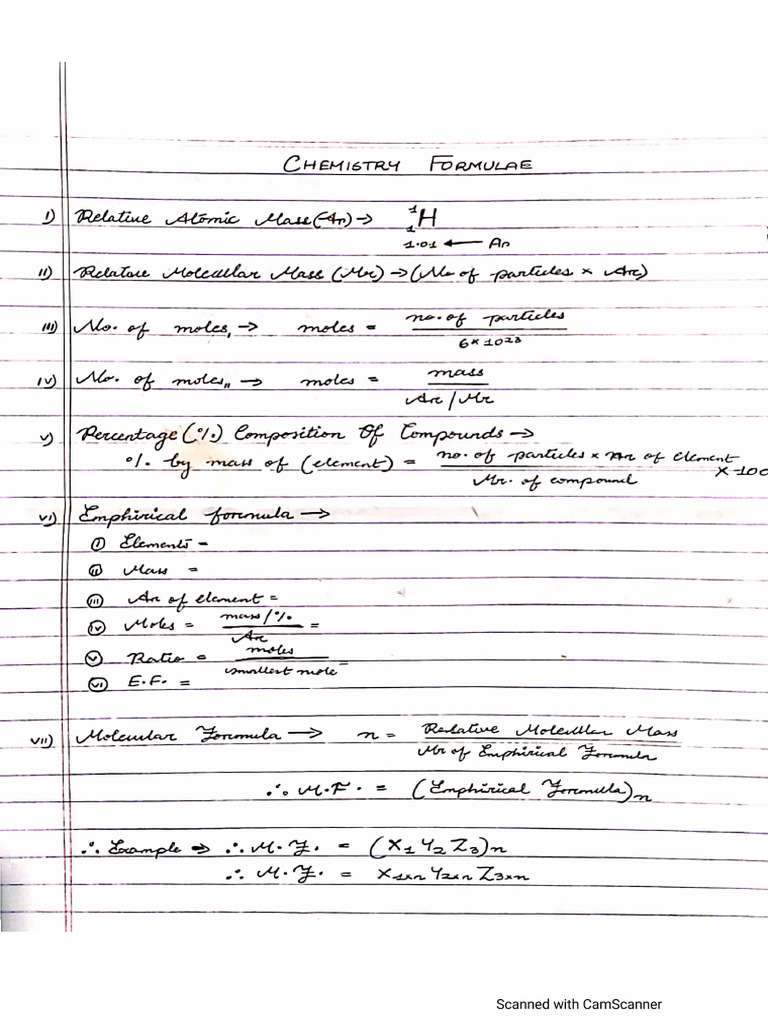 CHEMISTRY FORMULAE
i) Relative Atomic Mass(Ar) → ¹₁H
1.01 ← Ar
ii) Relative Molecular Mass (Mr) → (No of particles × Ar)
iii) No. of moles, → moles = no. of particles / 6×10²³
iv) No. of moles,, → moles = mass / Ar/Mr
v) Percentage (%) Composition Of Compounds →
% by mass of (element) = no. of particles × Ar of element / Mr. of compound × 100
vi) Emphirical formula →
(i) Elements =
(ii) Mass =
(iii) Ar of element =
(iv) Moles = mass/% / Ar =
(v) Ratio = moles / smallest mole =
(vi) E.F. =
vii) Molecular Formula → n = Relative Molecular Mass / Mr of Emphirical Formula
∴ M.F. = (Emphirical Formula)n
∴ Example ⇒ ∴ M.F. = (X₁Y₂Z₃)n
∴ M.F. = X₁ₓₙY₂ₓₙZ₃ₓₙ
Scanned with CamScanner